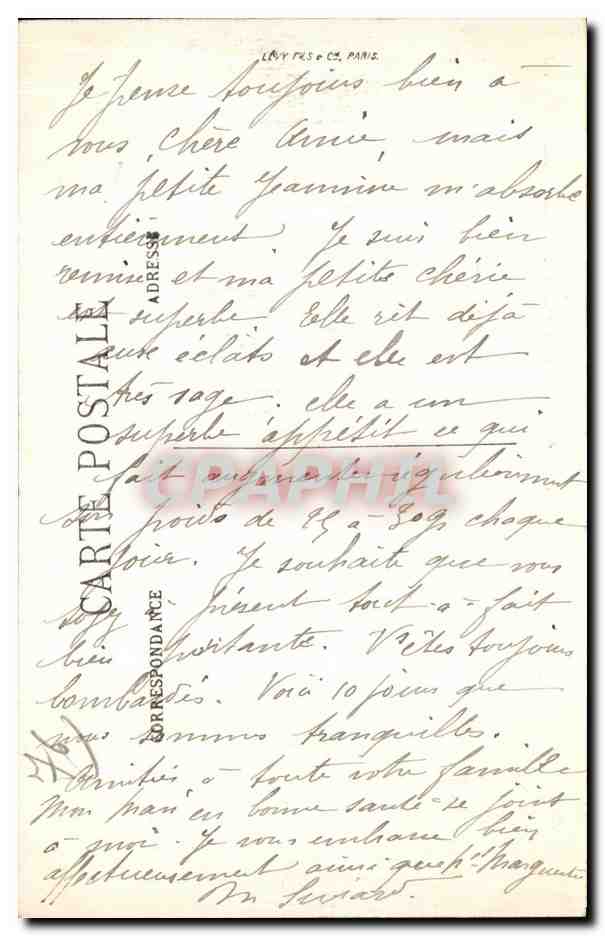 LÉVY FILS & Cie, PARIS.
Je pense toujours bien à
vous, chère Amie, mais
ma petite Jeannine m'absorbe
entièrement Je suis bien
remise et ma petite chérie
est superbe Elle rit déjà
aux éclats et elle est
très sage. elle a un
superbe appétit ce qui
fait augmenter régulièrement
son poids de 25 à 30g chaque
jour. Je souhaite que vous
soyez à présent tout-à-fait
bien portante. Vs êtes toujours
bombardés. Voilà 10 jours que
nous sommes tranquilles.
Amitiés à toute votre famille
Mon mari en bonne santé se joint
à moi. Je vous embrasse bien
affectueusement ainsi que Marguerite
M
CARTE POSTALE
ADRESSE
CORRESPONDANCE
76
CPAPHIL